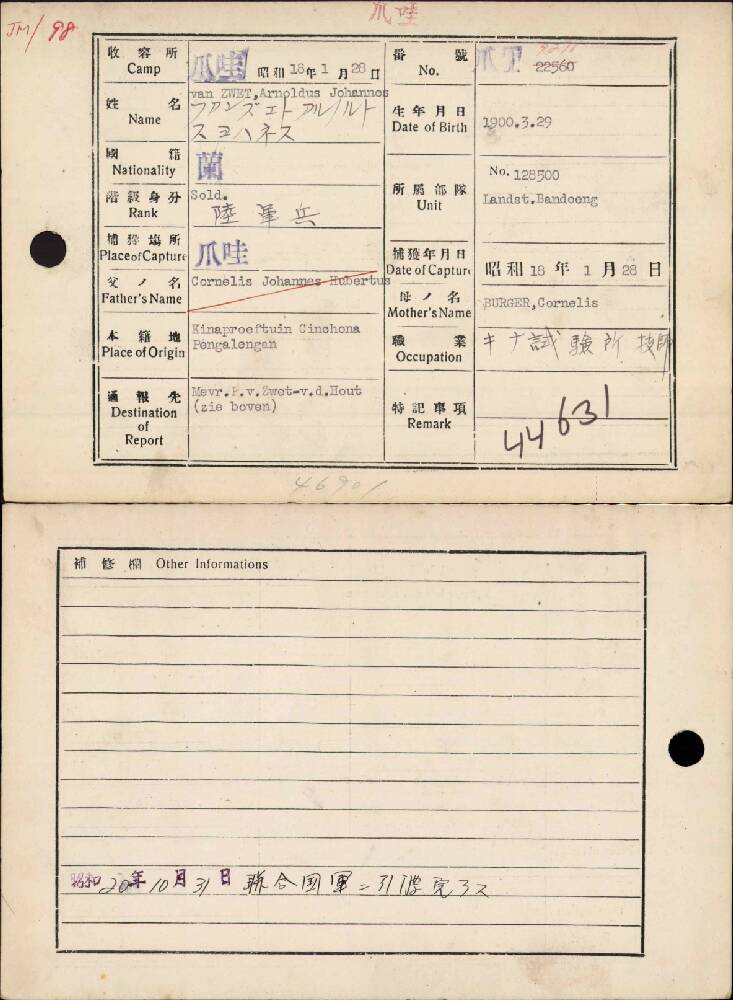 JM/ 98
爪哇
收容所 Camp 爪哇 昭和18年1月28日
番號 No. 爪 22560
姓名 Name van ZWET,Arnoldus Johannes
ファンズエト アルノルト
スヨハネス
生年月日 Date of Birth 1900.3.29
國籍 Nationality 蘭
階級身分 Rank Sold.
陸軍兵
所屬部隊 Unit No. 128500
Landst.Bandoeng
捕獲場所 Place of Capture 爪哇
捕獲年月日 Date of Capture 昭和18年1月28日
父ノ名 Father's Name Cornelis Johannes Hubertus
母ノ名 Mother's Name BURGER,Cornelis
本籍地 Place of Origin Kinaproeftuin Cinchona
Pengalengan
職業 Occupation キナ試驗所技師
通報先 Destination of Report Mevr.P.v.Zwet-v.d.Hout
(zie boven)
特記事項 Remark 44631
46901
補修欄 Other Informations
昭和20年10月31日 聯合国軍ニ引渡完了ス